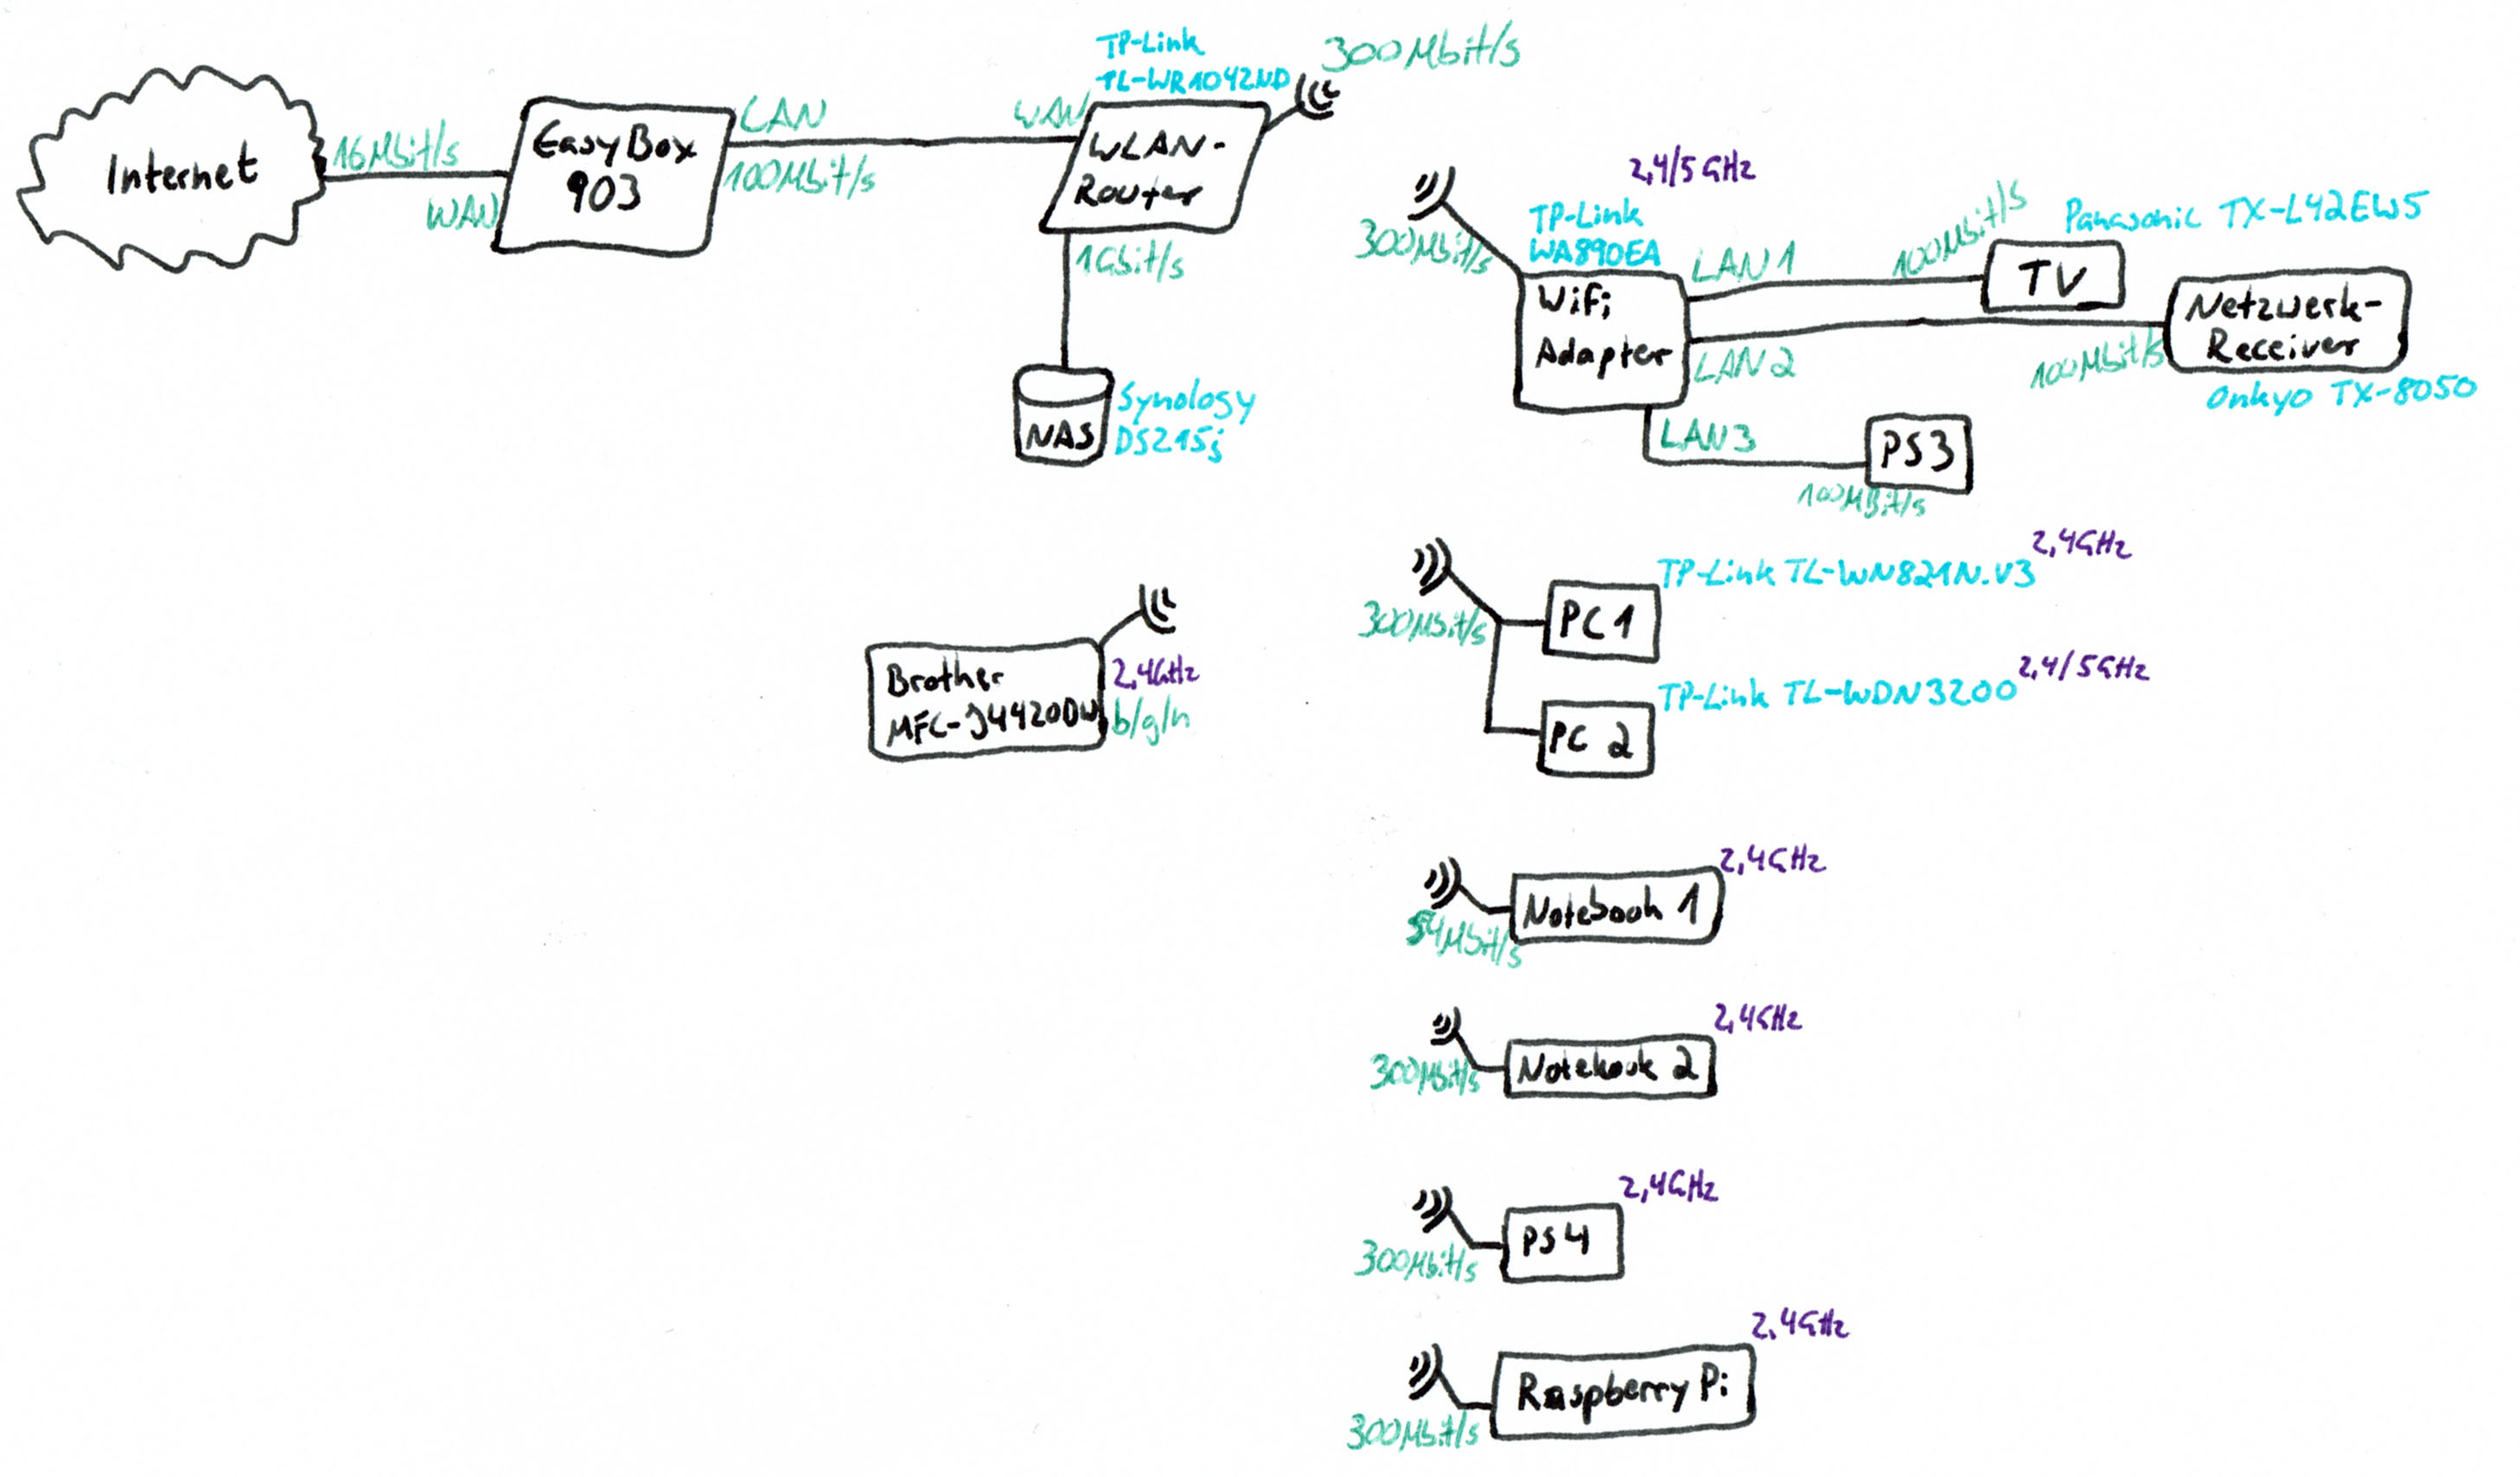 Internet
16Mbit/s
WAN
EasyBox
903
LAN
100Mbit/s
WAN
TP-Link
TL-WR1042ND
WLAN-
Router
300Mbit/s
1Gbit/s
NAS
Synology
DS215j
2,4/5GHz
300Mbit/s
TP-Link
WA890EA
Wifi
Adapter
LAN1
100Mbit/s
Panasonic TX-L42EW5
TV
LAN2
100Mbit/s
Netzwerk-
Receiver
Onkyo TX-8050
LAN3
100MBit/s
PS3
Brother
MFC-J4420DW
2,4GHz
b/g/n
300Mbit/s
PC1
TP-Link TL-WN821N.V3
2,4GHz
PC 2
TP-Link TL-WDN3200
2,4/5GHz
54Mbit/s
Notebook 1
2,4GHz
300Mbit/s
Notebook 2
2,4GHz
300Mbit/s
PS4
2,4GHz
300Mbit/s
Raspberry Pi
2,4GHz